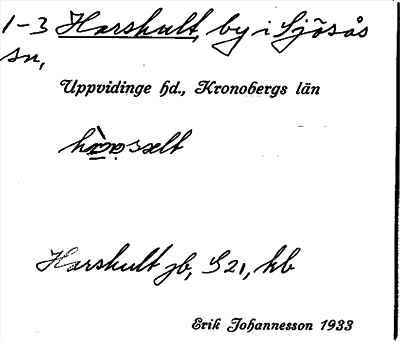 1-3 Harshult, by i Sjösås
sn,
Uppvidinge hd., Kronobergs län
Harshult jb, S 21, kb
Erik Johannesson 1933